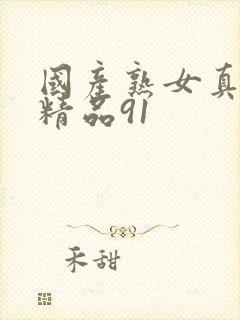 國產熟女真
精品91
禾甜